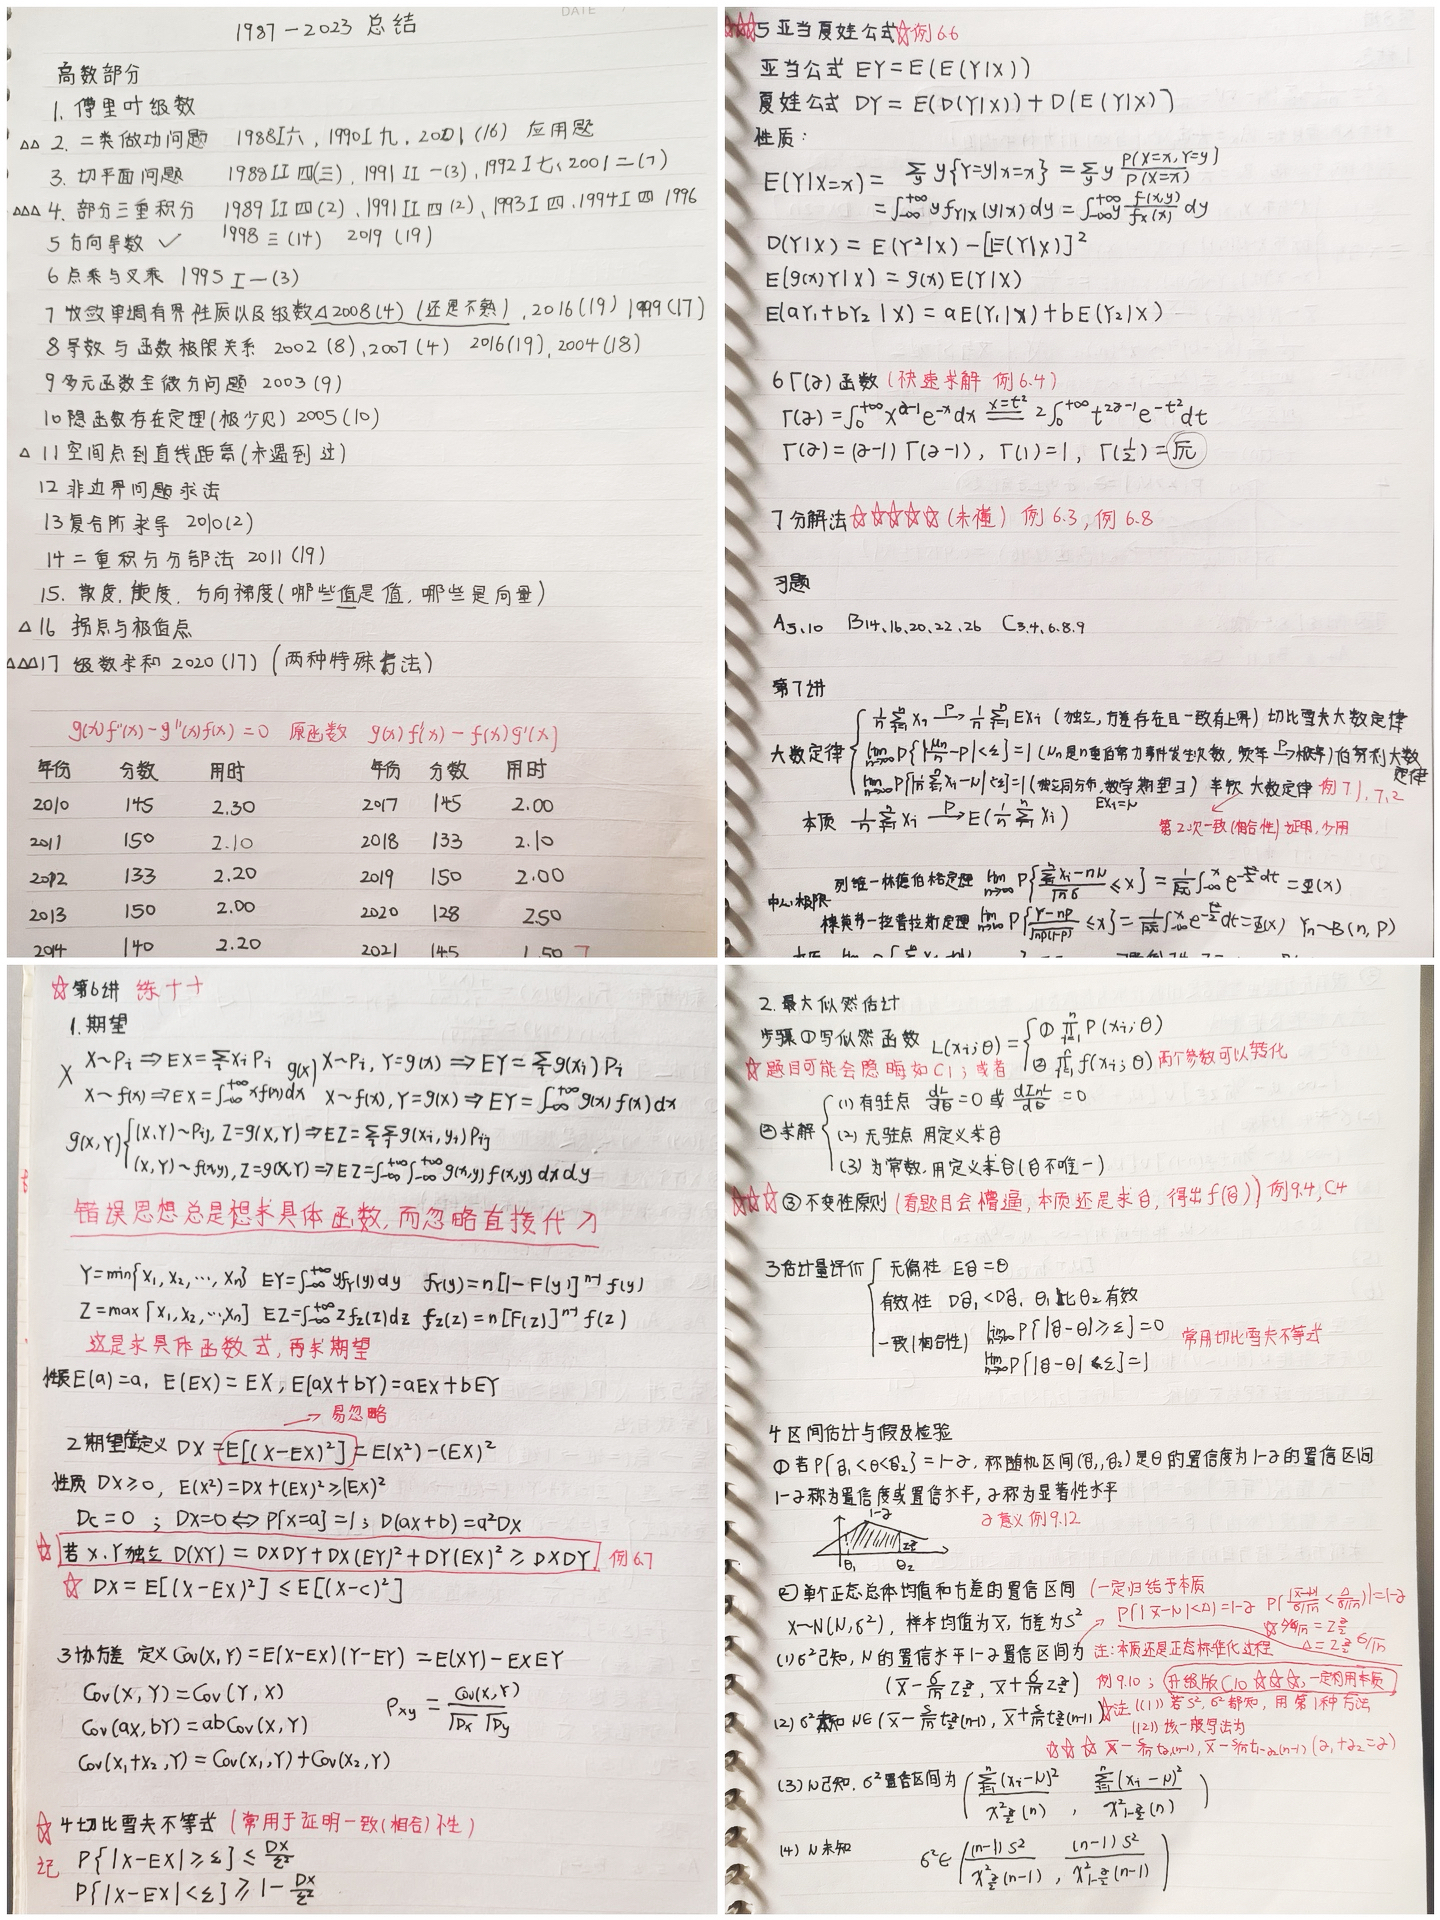 1987－2023 总结
DATE
高数部分
1. 傅里叶级数
△△ 2. 二类做功问题 1988I六, 1990I九, 2001 (16) 应用题
3. 切平面问题 1988II四(三), 1991 II 一(3), 1992 I七, 2001 二(7)
△△△ 4. 部分三重积分 1989 II四(2), 1991 II四(2), 1993I四, 1994I四 1996
5 方向导数 ✓ 1998 三(14) 2019 (19)
6 点乘与叉乘 1995 I一(3)
7 收敛单调有界性质以及级数△2008(4) (还是不熟), 2016(19) 1999(17)
8 导数与函数极限关系 2002 (8), 2007 (4) 2016(19), 2004 (18)
9 多元函数全微分问题 2003 (9)
10 隐函数存在定理(极少见) 2005 (10)
△ 11 空间点到直线距离(未遇到过)
12 非边界问题求法
13 复合所求导 2010(2)
14 二重积分分部法 2011 (19)
15. 散度, 旋度, 方向梯度(哪些值是值, 哪些是向量)
△ 16 拐点与极值点
△△△17 级数求和 2020 (17) (两种特殊方法)
g(x)f''(x)－g''(x)f(x) = 0 原函数 g(x)f'(x)－f(x)g'(x)
年份 分数 用时 年份 分数 用时
2010 145 2.30 2017 145 2.00
2011 150 2.10 2018 133 2.10
2012 133 2.20 2019 150 2.00
2013 150 2.00 2020 128 2.50
2014 140 2.20 2021 145 1.50
☆☆☆5 亚当夏娃公式☆例6.6
亚当公式 EY = E(E(Y|X))
夏娃公式 DY = E(D(Y|X)) + D(E(Y|X))
性质：
E(Y|X=x) = Σy y{Y=y|x=x} = Σy y P(X=x,Y=y)/P(X=x)
= ∫-∞^+∞ y fY|X (y|x) dy = ∫-∞^+∞ y f(x,y)/fx(x) dy
D(Y|X) = E(Y²|X) － [E(Y|X)]²
E(g(x)Y|X) = g(x) E(Y|X)
E(aY₁+bY₂|X) = aE(Y₁|X) + bE(Y₂|X)
6 Γ(α) 函数 (快速求解 例6.4)
Γ(α) = ∫0^+∞ x^α-1 e^-x dx x=t² 2∫0^+∞ t^2α-1 e^-t² dt
Γ(α) = (α-1) Γ(α-1), Γ(1) = 1, Γ(1/2) = √π
7 分解法☆☆☆☆☆(未懂) 例6.3, 例6.8
习题
A5,10 B14,16,20,22,26 C3,4,6,8,9
第7讲
大数定律
1/n Σ Xi P→ 1/n Σ EXi (独立, 方差存在且一致有上界) 切比雪夫大数定律
lim n→∞ P{|μn/n－p|<ε} = 1 (μn是n重伯努力事件发生次数, 频率 P→概率) 伯努利大数定律
lim n→∞ P{|1/n Σ Xi－μ|<ε}=1 (独立同分布, 数学期望∃) 辛钦大数定律 例7.1, 7.2
EXi=μ
本质 1/n Σ Xi P→ E(1/n Σ Xi)
第2次一致(相合性)证明, 少用
中心极限
列维一林德伯格定理 lim n→∞ P{(Σ Xi－nμ)/√nσ ≤ x} = 1/√2π ∫-∞^x e^-t²/2 dt = Φ(x)
棣莫弗一拉普拉斯定理 lim n→∞ P{(Y－np)/√np(1-p) ≤ x} = 1/√2π ∫-∞^x e^-t²/2 dt = Φ(x) Yn~B(n, p)
☆第6讲 练十十
1. 期望
X
X~Pi ⇒ EX = Σ xi Pi g(x) X~Pi, Y=g(x) ⇒ EY = Σ g(xi) Pi
X~f(x) ⇒ EX = ∫-∞^+∞ xf(x)dx X~f(x), Y=g(x) ⇒ EY = ∫-∞^+∞ g(x) f(x) dx
g(X,Y)
(X,Y)~Pij, Z=g(X,Y) ⇒ EZ = ΣΣ g(xi, yi) Pij
(X,Y)~f(x,y), Z=g(X,Y) ⇒ EZ = ∫-∞^+∞∫-∞^+∞ g(x,y) f(x,y) dxdy
错误思想总是想求具体函数, 而忽略直接代入
Y=min{X₁, X₂, …, Xn} EY=∫-∞^+∞ yfY(y)dy fY(y) = n[1－F(y)]^n-1 f(y)
Z=max{X₁, X₂, …, Xn} EZ=∫-∞^+∞ zfz(z)dz fz(z) = n[F(z)]^n-1 f(z)
这是求具体函数式, 再求期望
性质E(a)=a, E(EX) = EX, E(aX+bY)=aEX+bEY
→ 易忽略
2 期望值定义 DX = E[(X－EX)²] = E(X²)－(EX)²
性质 DX≥0, E(X²)=DX+(EX)²≥(EX)²
Dc = 0 ; DX=0 ⇔ P{x=a} = 1; D(ax+b) = a²DX
☆若X,Y独立 D(XY) = DXDY+DX(EY)²+DY(EX)² ≥ DXDY 例6.7
☆ DX = E[(X－EX)²] ≤ E[(X－c)²]
3 协方差 定义 Cov(X,Y) = E(X－EX)(Y－EY) = E(XY)－EXEY
Cov(X, Y) = Cov(Y, X) ρxy = Cov(X,Y)/√Dx √Dy
Cov(aX, bY) = abCov(X, Y)
Cov(X₁+X₂, Y) = Cov(X₁, Y) + Cov(X₂, Y)
☆ 4 切比雪夫不等式 (常用于证明一致(相合)性)
记 P{|X－EX|≥ε} ≤ DX/ε²
P{|X－EX|<ε} ≥ 1－DX/ε²
2. 最大似然估计
步骤①写似然函数 L(xi;θ) = ① ∏ P(xi;θ)
② ∏ f(xi;θ) 两个参数可以转化
☆题目可能会隐晦如C1; 或者
②求解
(1) 有驻点 dL/dθ = 0 或 dlnL/dθ = 0
(2) 无驻点 用定义求θ̂
(3) 为常数, 用定义求θ̂(θ̂不唯一)
☆☆☆ ③不变性原则 (看题目会懵逼, 本质还是求θ̂, 得出f(θ̂)) 例9.4, C4
3估计量评价
无偏性 Eθ̂=θ
有效性 Dθ̂₁<Dθ̂₂ θ̂₁比θ̂₂有效
一致(相合性) lim n→∞ P{|θ̂－θ|≥ε}=0 常用切比雪夫不等式
lim n→∞ P{|θ̂－θ|<ε}=1
4 区间估计与假设检验
①若P{θ̂₁<θ<θ̂₂}=1－α, 称随机区间(θ̂₁,θ̂₂)是θ的置信度为1－α的置信区间
1－α称为置信度或置信水平, α称为显著性水平
1-α α意义 例9.12
θ₁ θ₂ α/2
②单个正态总体均值和方差的置信区间 (一定归结于本质
X~N(μ,σ²), 样本均值为X̄, 方差为S² P{|X̄－μ|<Δ}=1－α P{|X̄－μ|/σ/√n < Δ/σ/√n}=1－α
☆ Δ/σ/√n = Zα/2
(1) σ²已知, μ的置信水平1－α置信区间为 注:本质还是正态标准化过程 Δ=Zα/2 σ/√n
(X̄－σ/√n Zα/2, X̄+σ/√n Zα/2) 例9.10; 升级版C10☆☆☆, 一定利用本质
(2) σ²未知 μ∈(X̄－S/√n tα/2(n-1), X̄+S/√n tα/2(n-1)) ☆注 ((1)) 若S², σ²都知, 用第1种方法
((2)) 按一般写法为
☆☆☆ X̄－S/√n tα₁(n-1), X̄－S/√n t1-α₂(n-1) (α₁+α₂=α)
(3) μ已知, σ²置信区间为 (Σ(Xi－μ)²/χ²α/2(n), Σ(Xi－μ)²/χ²1-α/2(n))
(4) μ未知 σ²∈((n-1)S²/χ²α/2(n-1), (n-1)S²/χ²1-α/2(n-1))